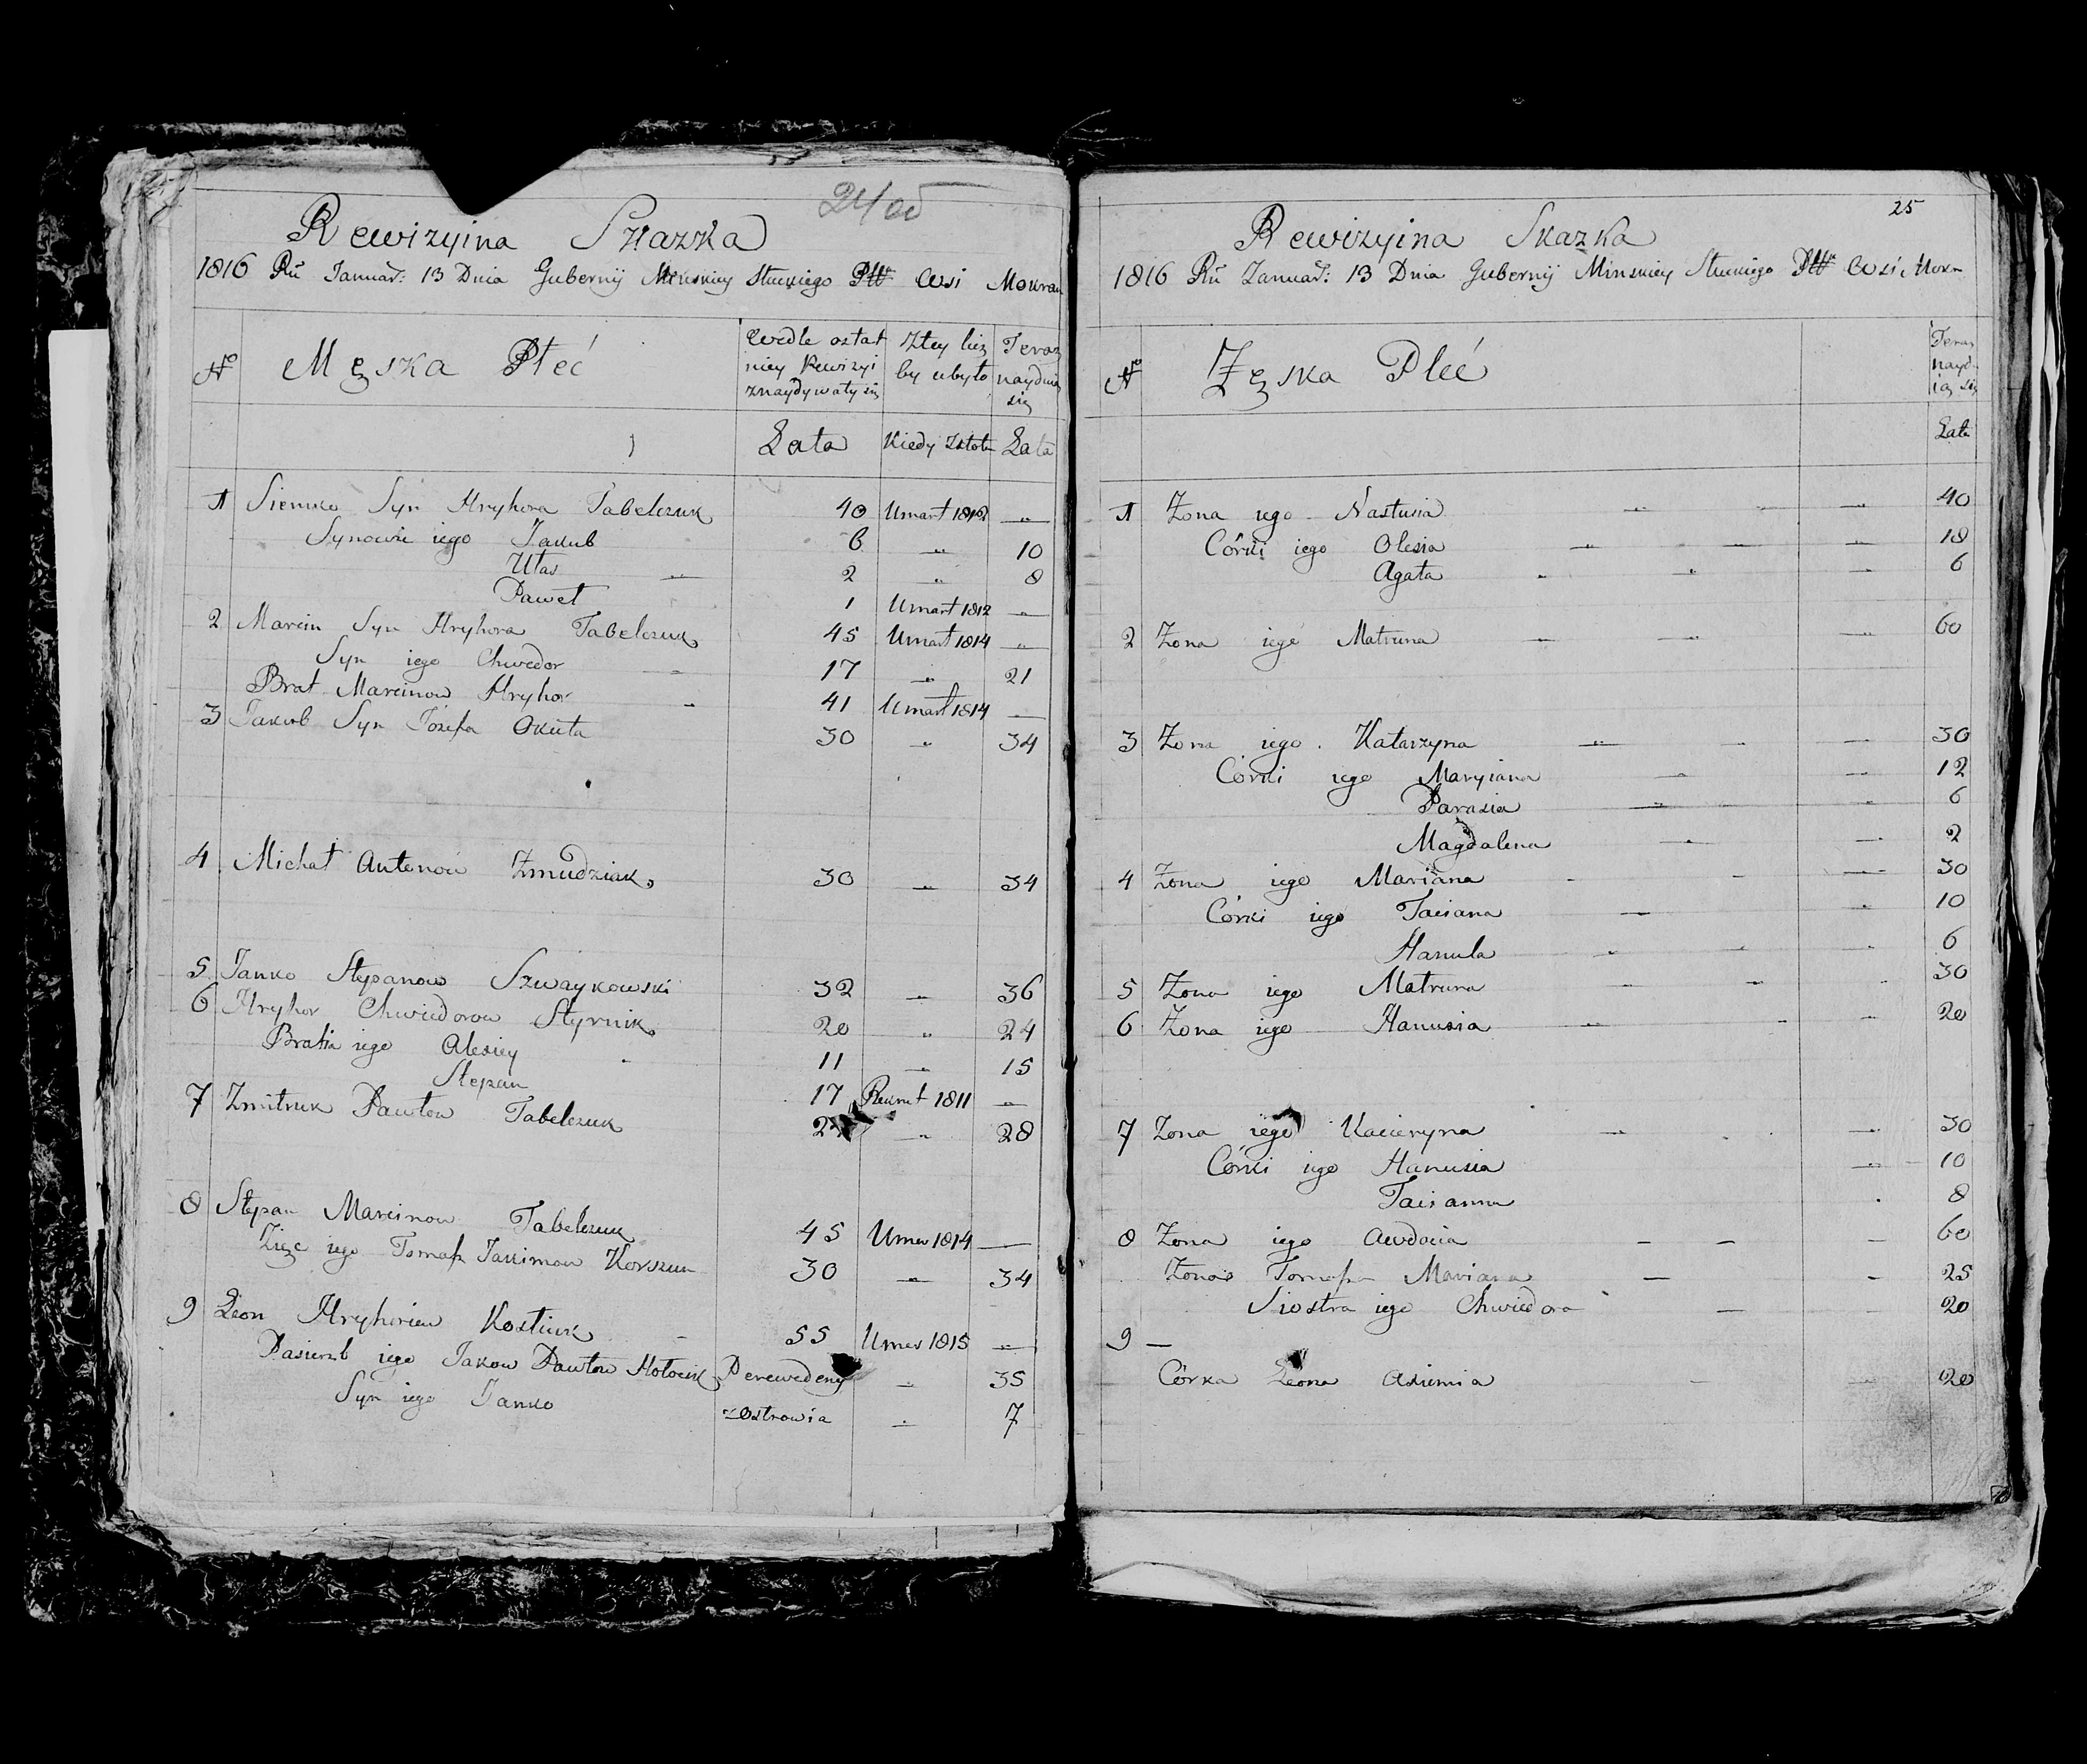 24 об
Rewizyina Skazka
1816 Rũ Januar: 13 Dnia Gubernij Minskiey Słuckiego Pttu Wsi Mokran
№ Męska Płeć Wedle ostat Ztey licz Teraz
niey Rewizyi by ubyło nayduią
znaydywały się się
Lata Kiedy zstoła Lata
1 Siemko Syn Hryhora Tabelczuk 40 Umarł 1812 "
Synowie iego Jakub 6 " 10
Ułas " 2 " 8
Paweł 1 Umarł 1812 "
2 Marcin Syn Hryhora Tabelczuk 45 Umarł 1814 "
Syn iego Chwedor " 17 " 21
Brat Marcinow Hryhor " 41 Umarł 1814 "
3 Jakub Syn Józefa Okuta 30 " 34
4 Michał Antonow Zmudziak 30 " 34
5 Janko Stepanow Szwaykowski 32 " 36
6 Hryhor Chwiedorow Styrnik 20 " 24
Bratia iego Alexiey 11 " 15
Stepan 17 Rekrut 1811 "
7 Zmitruk Pawłow Tabelczuk 24 " 28
8 Stepan Marcinow Tabelczuk 45 Umer 1814 —
Zięc iego Tomasz Jakimow Korszun 30 " 34
9 Leon Hryhoriew Kostiuk 55 Umer 1815 "
Pasierzb iego Jakow Pawłow Hołocik Perewedeny " 35
Syn iego Janko z Ostrowia " 7
25
Rewizyina Skazka
1816 Rũ Januar: 13 Dnia Gubernij Minskiey Słuckiego Pttu Wsi Mokr
№ Zęska Płeć Teraz
nayd
ią się
Lata
1 Zona iego Nastusia " " 40
Córki iego Olesia " " " 18
Agata " " " 6
2 Zona iego Matruna " " " 60
3 Zona iego Katarzyna " " " 30
Córki iego Maryiana " " 12
Parasia " " 6
Magdalena " " 2
4 Zona iego Mariana " " " 30
Córki iego Taciana " " 10
Hanula " " " 6
5 Zona iego Matruna " " " 30
6 Zona iego Hanusia " " " 20
7 Zona iego Kacieryna " " 30
Córki iego Hanusia " 10
Tacianna " 8
8 Zona iego Awdocia — — — 60
Zona Tomasza Mariana — — 25
Siostra iego Chwiedora — — 20
9 —
Córka Leona Axiemia — — 20